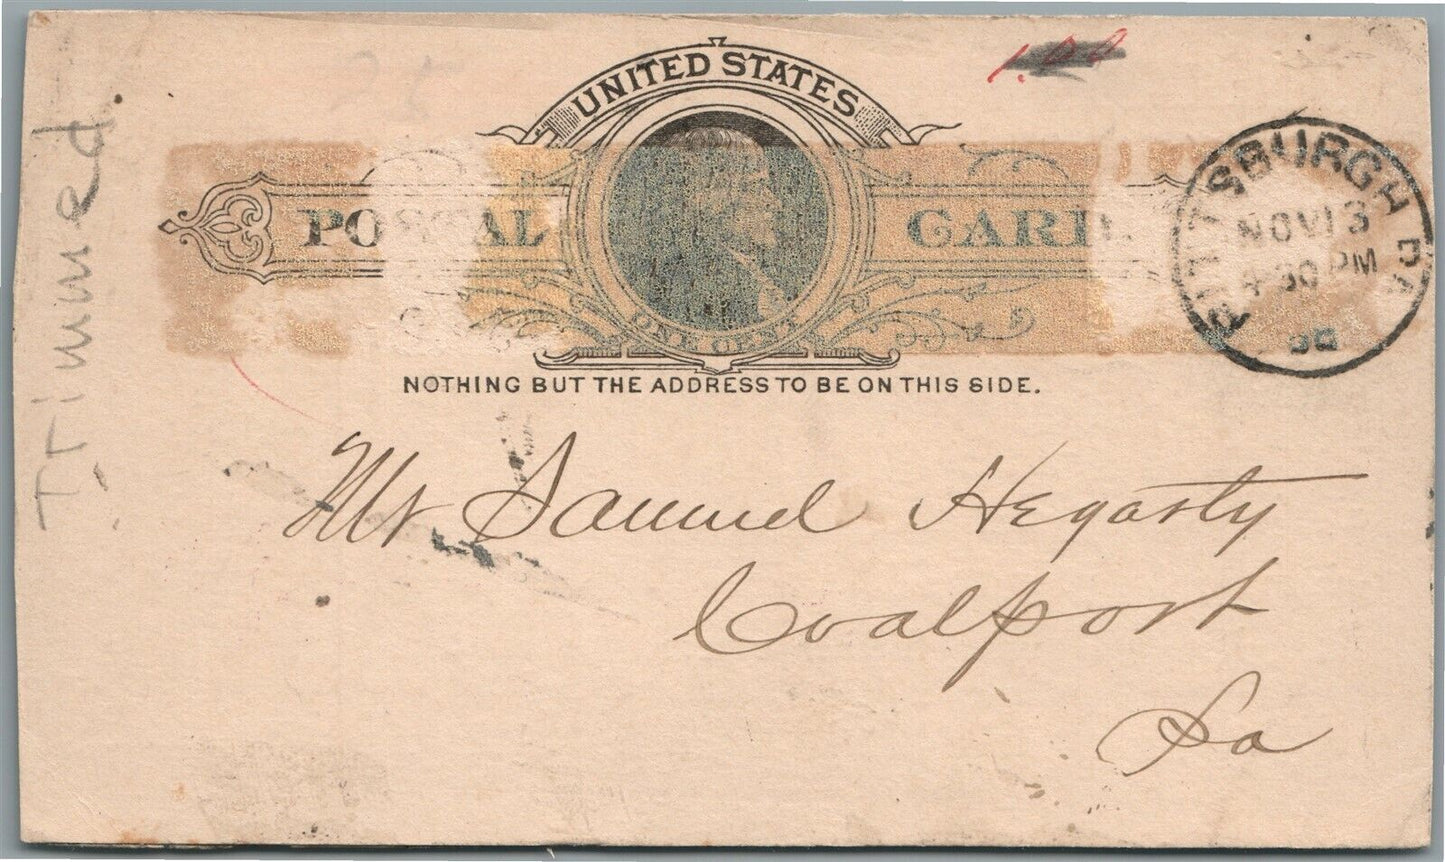 Trimmed.
1.00
UNITED STATES
POSTAL CARD.
ONE CENT
NOTHING BUT THE ADDRESS TO BE ON THIS SIDE.
PITTSBURGH PA
NOV 13
4-30 PM
Mr Samuel Hegarty
Coalport
Pa